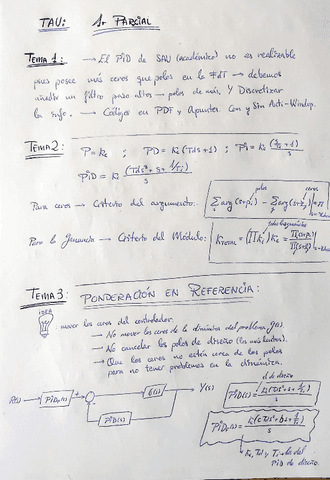 TAU: 1er PARCIAL
TEMA 1: → El PID de SAU (académico) no es realizable
pues posee más ceros que polos en la FdT → debemos
añadir un filtro paso altos → polos de más. Y Discretizar
la info. → Códigos en PDF y Apuntes. Con y Sin Anti-Windup.
TEMA 2: P = Kc ; PD = Kc(Tds+1) ; PI = Kc (s+1)/s
PID = Kc (Tds²+s+1/Ti)/s
polos ceros
Para ceros → Criterio del argumento: Σ arg(s+pi) − Σ arg(s+zj) = π
Para la Ganancia → Criterio del Módulo:
TEMA 3: PONDERACIÓN EN REFERENCIA:
IDEA
mover los ceros del controlador.
→ No mover los ceros de la dinámica del problema G(s).
→ No cancelar los polos de diseño (los más lentos).
→ Que los ceros no estén cerca de los polos
para no tener problemas en la dinámica.
el de diseño
R(s) PIDr(s) G(s) Y(s)
PID(s) = Kc(Tds²+s+1/Ti)/s
PID(s)
PIDr(s) = Kc(cTds²+bs+1/Ti)/s
Kc, Td y Ti los del
PID de diseño.